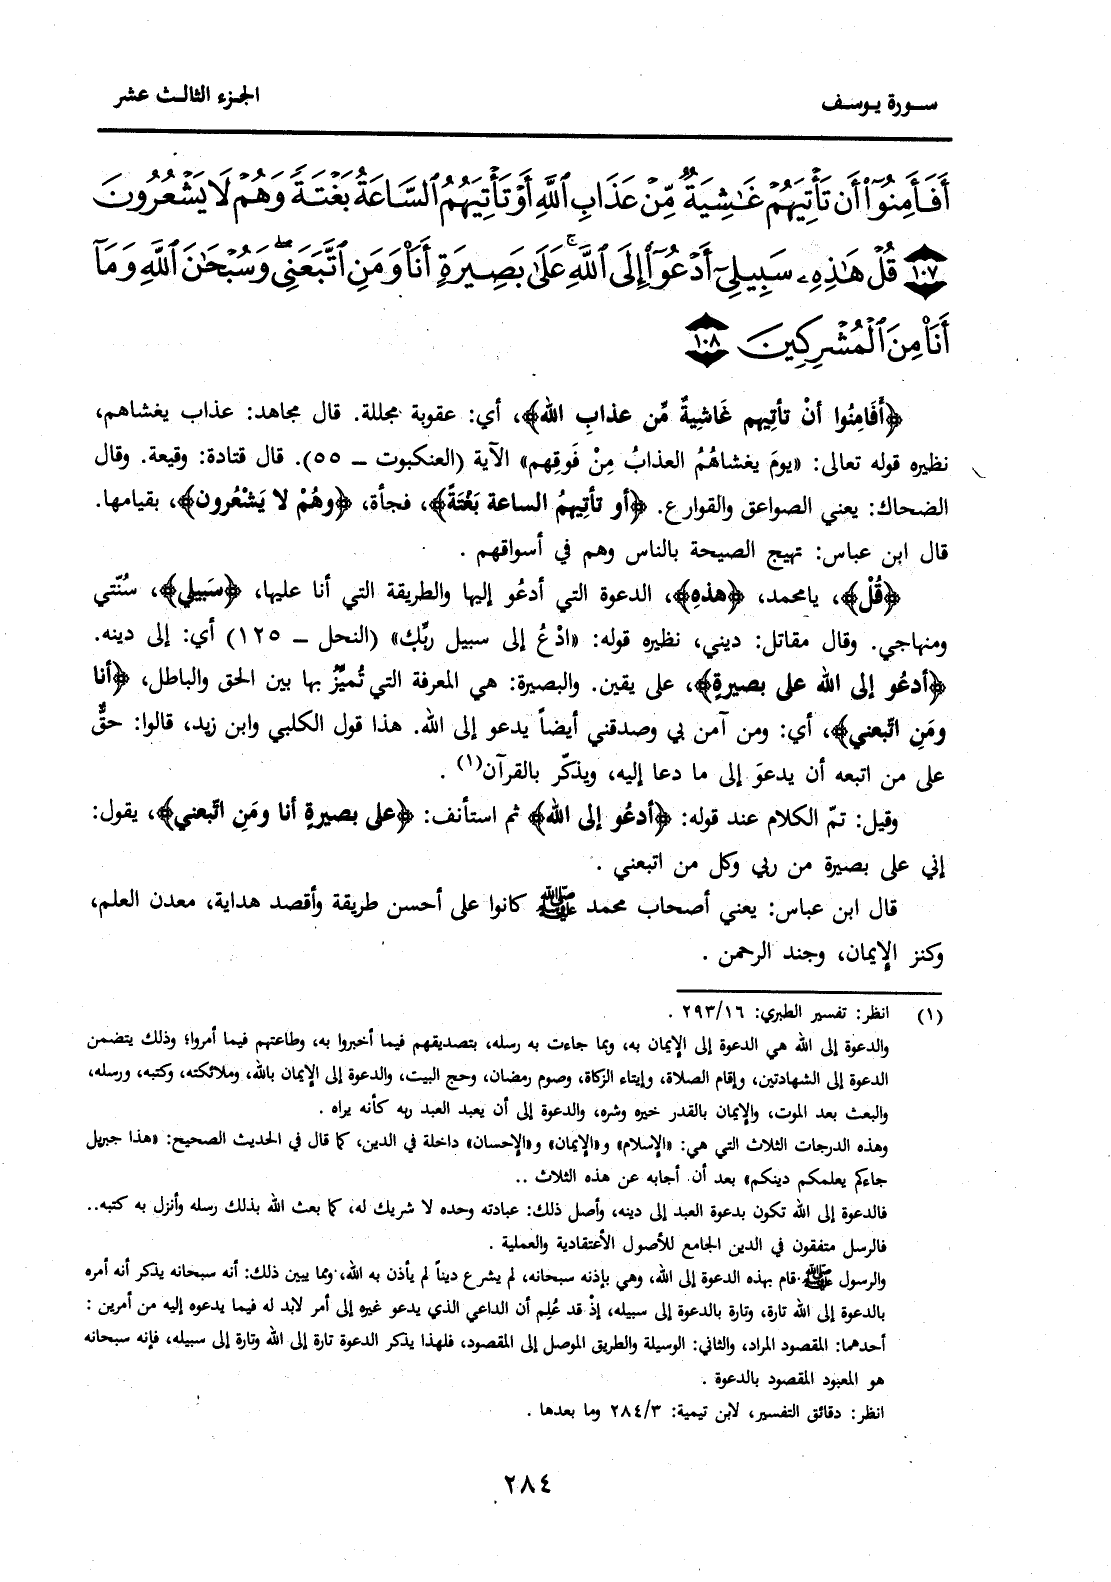 سورة يوسف
الجزء الثالث عشر
أَفَأَمِنُوٓا۟ أَن تَأْتِيَهُمْ غَٰشِيَةٌ مِّنْ عَذَابِ ٱللَّهِ أَوْ تَأْتِيَهُمُ ٱلسَّاعَةُ بَغْتَةً وَهُمْ لَا يَشْعُرُونَ
﴿١٠٧﴾ قُلْ هَٰذِهِۦ سَبِيلِىٓ أَدْعُوٓا۟ إِلَى ٱللَّهِ ۚ عَلَىٰ بَصِيرَةٍ أَنَا۠ وَمَنِ ٱتَّبَعَنِى ۖ وَسُبْحَٰنَ ٱللَّهِ وَمَآ
أَنَا۠ مِنَ ٱلْمُشْرِكِينَ ﴿١٠٨﴾
﴿أَفَامِنُوا أنْ تأتِيهم غَاشِيةٌ مِّن عذابِ الله﴾، أي: عقوبة مجللة. قال مجاهد: عذاب يغشاهم،
نظيره قوله تعالى: «يومَ يغشاهُمُ العذابُ مِنْ فَوقِهم» الآية (العنكبوت ــ ٥٥). قال قتادة: وقيعة. وقال
الضحاك: يعني الصواعق والقوارع. ﴿أو تأتِيهمُ الساعة بَغْتَةً﴾، فجأة، ﴿وهُمْ لا يَشْعُرون﴾، بقيامها.
قال ابن عباس: تهيج الصيحة بالناس وهم في أسواقهم .
﴿قُلْ﴾، يامحمد، ﴿هذهِ﴾، الدعوة التي أدعُو إليها والطريقة التي أنا عليها، ﴿سَبيلي﴾، سُنّتي
ومنهاجي. وقال مقاتل: ديني، نظيره قوله: «ادْعُ إلى سبيل ربِّك» (النحل ــ ١٢٥) أي: إلى دينه.
﴿أدعُو إلى الله على بصيرةٍ﴾، على يقين. والبصيرة: هي المعرفة التي تُميّزُ بها بين الحق والباطل، ﴿أنا
ومَنِ اتّبعني﴾، أي: ومن آمن بي وصدقني أيضاً يدعو إلى الله. هذا قول الكلبي وابن زيد، قالوا: حقٌّ
على من اتبعه أن يدعوَ إلى ما دعا إليه، ويذكّر بالقرآن(١) .
وقيل: تمّ الكلام عند قوله: ﴿أدعُو إلى الله﴾ ثم استأنف: ﴿على بصيرةٍ أنا ومَنِ اتّبعني﴾، يقول:
إني على بصيرة من ربي وكل من اتبعني .
قال ابن عباس: يعني أصحاب محمد ﷺ كانوا على أحسن طريقة وأقصد هداية، معدن العلم،
وكنز الإيمان، وجند الرحمن .
(١) انظر: تفسير الطبري: ٢٩٣/١٦ .
والدعوة إلى الله هي الدعوة إلى الإيمان به، وبما جاءت به رسله، بتصديقهم فيما أخبروا به، وطاعتهم فيما أمروا؛ وذلك يتضمن
الدعوة إلى الشهادتين، وإقام الصلاة، وإيتاء الزكاة، وصوم رمضان، وحج البيت، والدعوة إلى الإيمان بالله، وملائكته، وكتبه، ورسله،
والبعث بعد الموت، والإيمان بالقدر خيره وشره، والدعوة إلى أن يعبد العبد ربه كأنه يراه .
وهذه الدرجات الثلاث التي هي: «الإسلام» و«الإيمان» و«الإحسان» داخلة في الدين، كما قال في الحديث الصحيح: «هذا جبريل
جاءكم يعلمكم دينكم» بعد أن أجابه عن هذه الثلاث ..
فالدعوة إلى الله تكون بدعوة العبد إلى دينه، وأصل ذلك: عبادته وحده لا شريك له، كما بعث الله بذلك رسله وأنزل به كتبه..
فالرسل متفقون في الدين الجامع للأصول الأعتقادية والعملية .
والرسول ﷺ قام بهذه الدعوة إلى الله، وهي بإذنه سبحانه، لم يشرع ديناً لم يأذن به الله، ومما يبين ذلك: أنه سبحانه يذكر أنه أمره
بالدعوة إلى الله تارة، وتارة بالدعوة إلى سبيله، إذْ قد عُلِم أن الداعي الذي يدعو غيره إلى أمر لابد له فيما يدعوه إليه من أمرين :
أحدهما: المقصود المراد، والثاني: الوسيلة والطريق الموصل إلى المقصود، فلهذا يذكر الدعوة تارة إلى الله وتارة إلى سبيله، فإنه سبحانه
هو المعبود المقصود بالدعوة .
انظر: دقائق التفسير، لابن تيمية: ٢٨٤/٣ وما بعدها .
٢٨٤